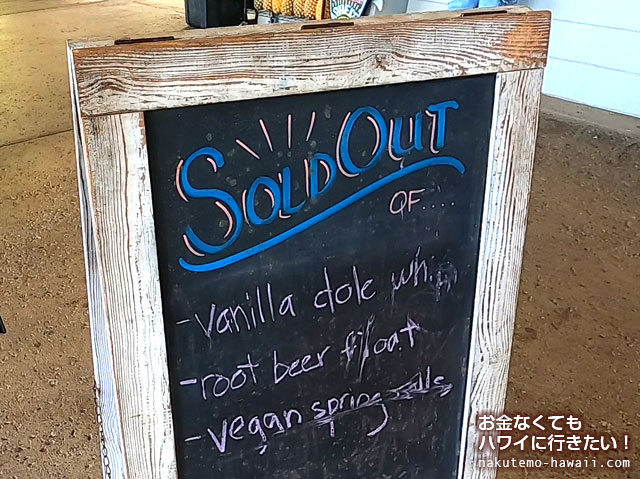 SOLD OUT
OF....
-vanilla dole whip
-root beer float
-vegan spring rolls
お金なくても
ハワイに行きたい！
nakutemo-hawaii.com